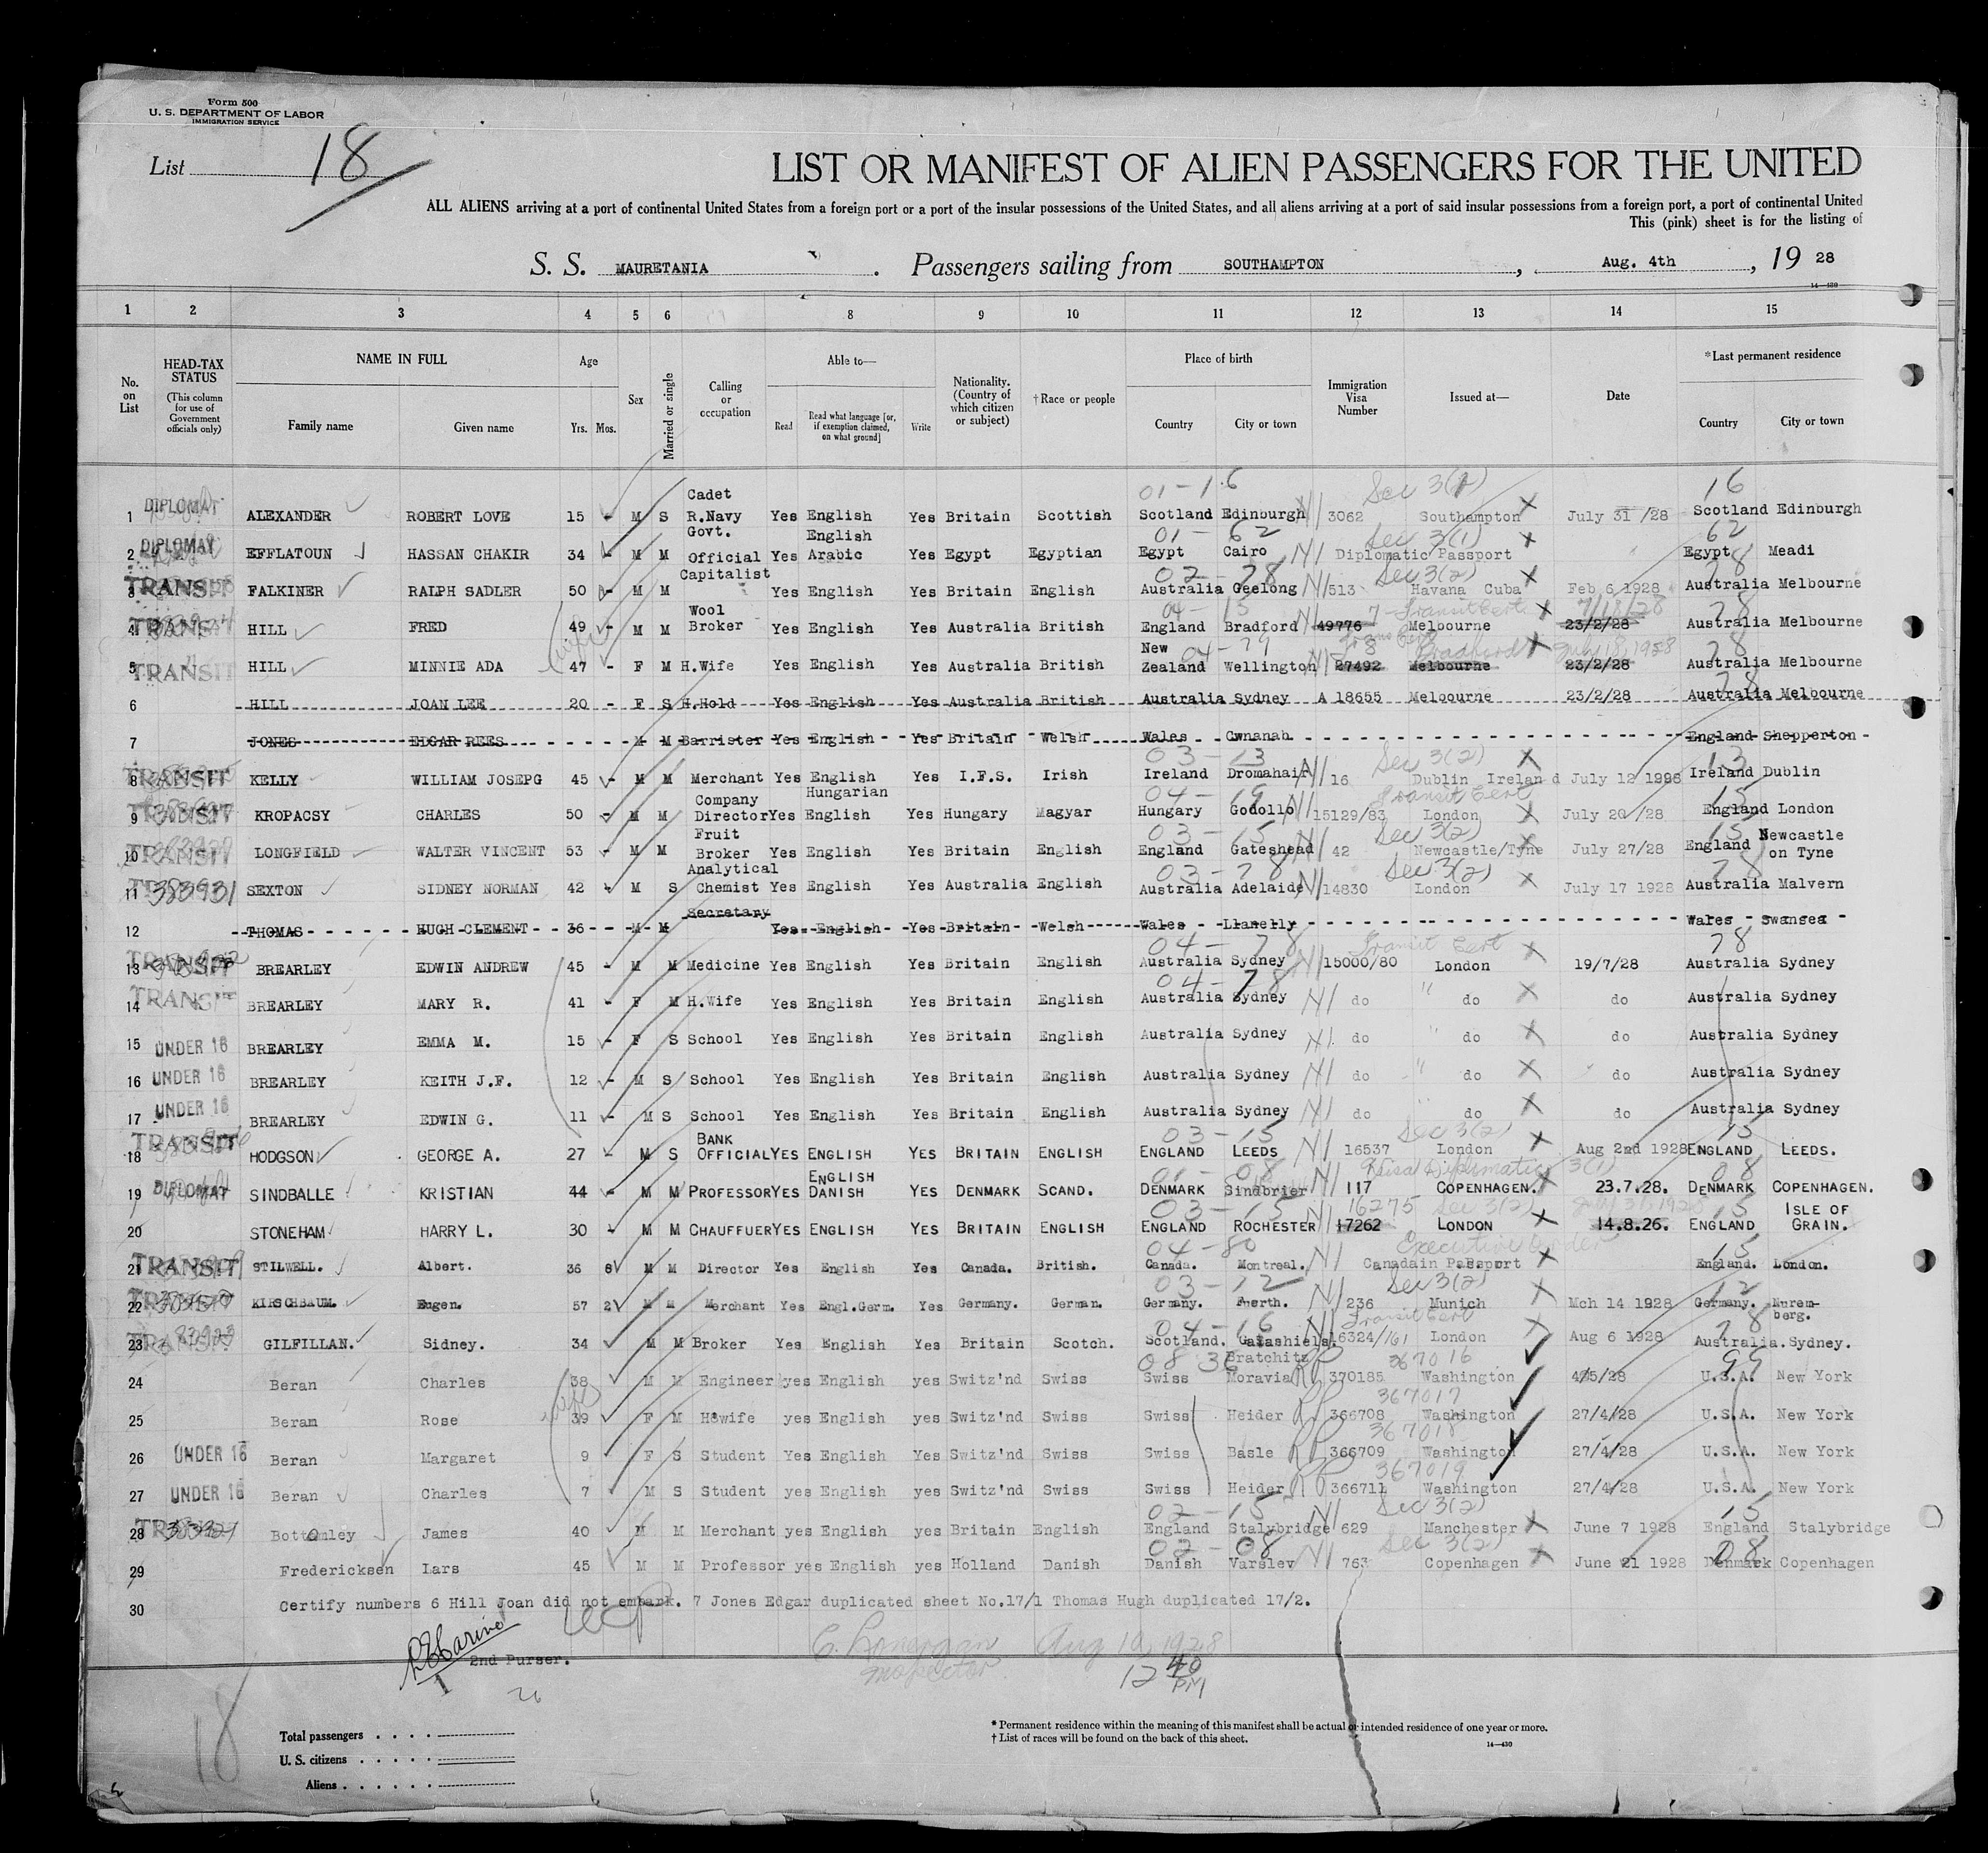 Form 500
U. S. DEPARTMENT OF LABOR
IMMIGRATION SERVICE
List 18
LIST OR MANIFEST OF ALIEN PASSENGERS FOR THE UNITED
ALL ALIENS arriving at a port of continental United States from a foreign port or a port of the insular possessions of the United States, and all aliens arriving at a port of said insular possessions from a foreign port, a port of continental United
This (pink) sheet is for the listing of
S. S. MAURETANIA. Passengers sailing from SOUTHAMPTON, Aug. 4th, 19 28
14—430
1 2 3 4 5 6 8 9 10 11 12 13 14 15
No. on List
HEAD-TAX STATUS
(This column for use of Government officials only)
NAME IN FULL
Family name Given name
Age
Yrs. Mos.
Sex
Married or single
Calling or occupation
Able to—
Read
Read what language [or, if exemption claimed, on what ground]
Write
Nationality. (Country of which citizen or subject)
†Race or people
Place of birth
Country City or town
Immigration Visa Number
Issued at—
Date
*Last permanent residence
Country City or town
01-16 Sec 3(2) 16
1 DIPLOMAT ALEXANDER ROBERT LOVE 15 - M S Cadet R.Navy Yes English Yes Britain Scottish Scotland Edinburgh 3062 Southampton July 31 /28 Scotland Edinburgh
01-62 Sec 3(1) 62
2 DIPLOMAT EFFLATOUN HASSAN CHAKIR 34 - M M Govt. Official Yes English Arabic Yes Egypt Egyptian Egypt Cairo Diplomatic Passport Egypt Meadi
02-78 Sec 3(2) 78
3 TRANSIT FALKINER RALPH SADLER 50 - M M Capitalist Yes English Yes Britain English Australia Geelong 513 Havana Cuba Feb 6 1928 Australia Melbourne
04-15 7-Transit Cert. 7/18/28 78
4 TRANSIT HILL FRED 49 - M M Wool Broker Yes English Yes Australia British England Bradford 49776 Melbourne 23/2/28 Australia Melbourne
04-79 Trans Cert 8 Bradford July 18, 1928 78
5 TRANSIT HILL MINNIE ADA 47 - F M H.Wife Yes English Yes Australia British New Zealand Wellington 27492 Melbourne 23/2/28 Australia Melbourne
78
6 HILL JOAN LEE 20 - F S H.Hold Yes English Yes Australia British Australia Sydney A 18655 Melbourne 23/2/28 Australia Melbourne
7 JONES EDGAR REES M M Barrister Yes English Yes Britain Welsh Wales Cwnanah England Shepperton
03-13 Sec 3(2) 13
8 TRANSIT KELLY WILLIAM JOSEPG 45 - M M Merchant Yes English Yes I.F.S. Irish Ireland Dromahair 16 Dublin Ireland July 12 1996 Ireland Dublin
04-19 Transit Cert 15
9 TRANSIT KROPACSY CHARLES 50 - M M Company Director Yes Hungarian English Yes Hungary Magyar Hungary Godollo 15129/83 London July 20 /28 England London
03-15 Sec 3(2) 15
10 TRANSIT LONGFIELD WALTER VINCENT 53 - M M Fruit Broker Yes English Yes Britain English England Gateshead 42 Newcastle/Tyne July 27/28 England Newcastle on Tyne
03-78 Sec 3(2) 78
11 383931 SEXTON SIDNEY NORMAN 42 - M S Analytical Chemist Yes English Yes Australia English Australia Adelaide 14830 London July 17 1928 Australia Malvern
12 THOMAS HUGH CLEMENT 36 - M M Secretary Yes English Yes Britain Welsh Wales Llanelly Wales Swansea
04-78 Transit Cert 78
13 TRANSIT BREARLEY EDWIN ANDREW 45 - M M Medicine Yes English Yes Britain English Australia Sydney 15000/80 London 19/7/28 Australia Sydney
04-78
14 TRANSIT BREARLEY MARY R. 41 - F M H.Wife Yes English Yes Britain English Australia Sydney do " do do Australia Sydney
15 UNDER 16 BREARLEY EMMA M. 15 - F S School Yes English Yes Britain English Australia Sydney do " do do Australia Sydney
16 UNDER 16 BREARLEY KEITH J.F. 12 - M S School Yes English Yes Britain English Australia Sydney do " do do Australia Sydney
17 UNDER 16 BREARLEY EDWIN G. 11 - M S School Yes English Yes Britain English Australia Sydney do " do do Australia Sydney
03-15 Sec 3(2) 15
18 TRANSIT HODGSON GEORGE A. 27 - M S BANK OFFICIAL YES ENGLISH YES BRITAIN ENGLISH ENGLAND LEEDS 16537 London Aug 2nd 1928 ENGLAND LEEDS.
01-08 Diplomatic 3(1) 08
19 DIPLOMAT SINDBALLE KRISTIAN 44 - M M PROFESSOR YES ENGLISH DANISH YES DENMARK SCAND. DENMARK Sindbrier 117 COPENHAGEN. 23.7.28. DENMARK COPENHAGEN.
03-15 16275 Sec 3(2) July 31, 1928 15
20 STONEHAM HARRY L. 30 - M M CHAUFFUER YES ENGLISH YES BRITAIN ENGLISH ENGLAND ROCHESTER 17262 LONDON 14.8.26. ENGLAND ISLE OF GRAIN.
04-80 Executive Order 15
21 TRANSIT STILWELL. Albert. 36 6 M M Director Yes English Yes Canada. British. Canada. Montreal. Canadain Passport England. London.
03-12 Sec 3(2) 12
22 TRANSIT KIRSCHBAUM. Eugen. 57 2 M M Merchant Yes Engl.Germ. Yes Germany. German. Germany. Fuerth. 236 Munich Mch 14 1928 Germany. Nurem-berg.
04-16 Transit Cert 78
23 TRANSIT GILFILLAN. Sidney. 34 M M Broker Yes English Yes Britain Scotch. Scotland. Galashiels. 16324/161 London Aug 6 1928 Australia. Sydney.
08 36 367016 99
24 Beran Charles 38 M M Engineer yes English yes Switz'nd Swiss Swiss Bratchitz Moravia RP 370185 Washington 4/5/28 U.S.A. New York
367017
25 Beran Rose 39 F M Hewife yes English yes Switz'nd Swiss Swiss Heider RP 366708 Washington 27/4/28 U.S.A. New York
367018
26 UNDER 16 Beran Margaret 9 F S Student Yes English Yes Switz'nd Swiss Swiss Basle RP 366709 Washington 27/4/28 U.S.A. New York
367019
27 UNDER 16 Beran Charles 7 M S Student yes English yes Switz'nd Swiss Swiss Heider RP 366711 Washington 27/4/28 U.S.A. New York
02-15 Sec 3(2) 15
28 383927 Bottomley James 40 M M Merchant yes English yes Britain English England Stalybridge 629 Manchester June 7 1928 England Stalybridge
02-08 Sec 3(2) 08
29 Fredericksen Lars 45 M M Professor yes English yes Holland Danish Danish Varslev 763 Copenhagen June 21 1928 Denmark Copenhagen
30 Certify numbers 6 Hill Joan did not embark. 7 Jones Edgar duplicated sheet No.17/1 Thomas Hugh duplicated 17/2.
2nd Purser.
Inspector Aug 10, 1928
12 40 PM
26
18
Total passengers
U. S. citizens
Aliens
* Permanent residence within the meaning of this manifest shall be actual or intended residence of one year or more.
† List of races will be found on the back of this sheet.
14—430